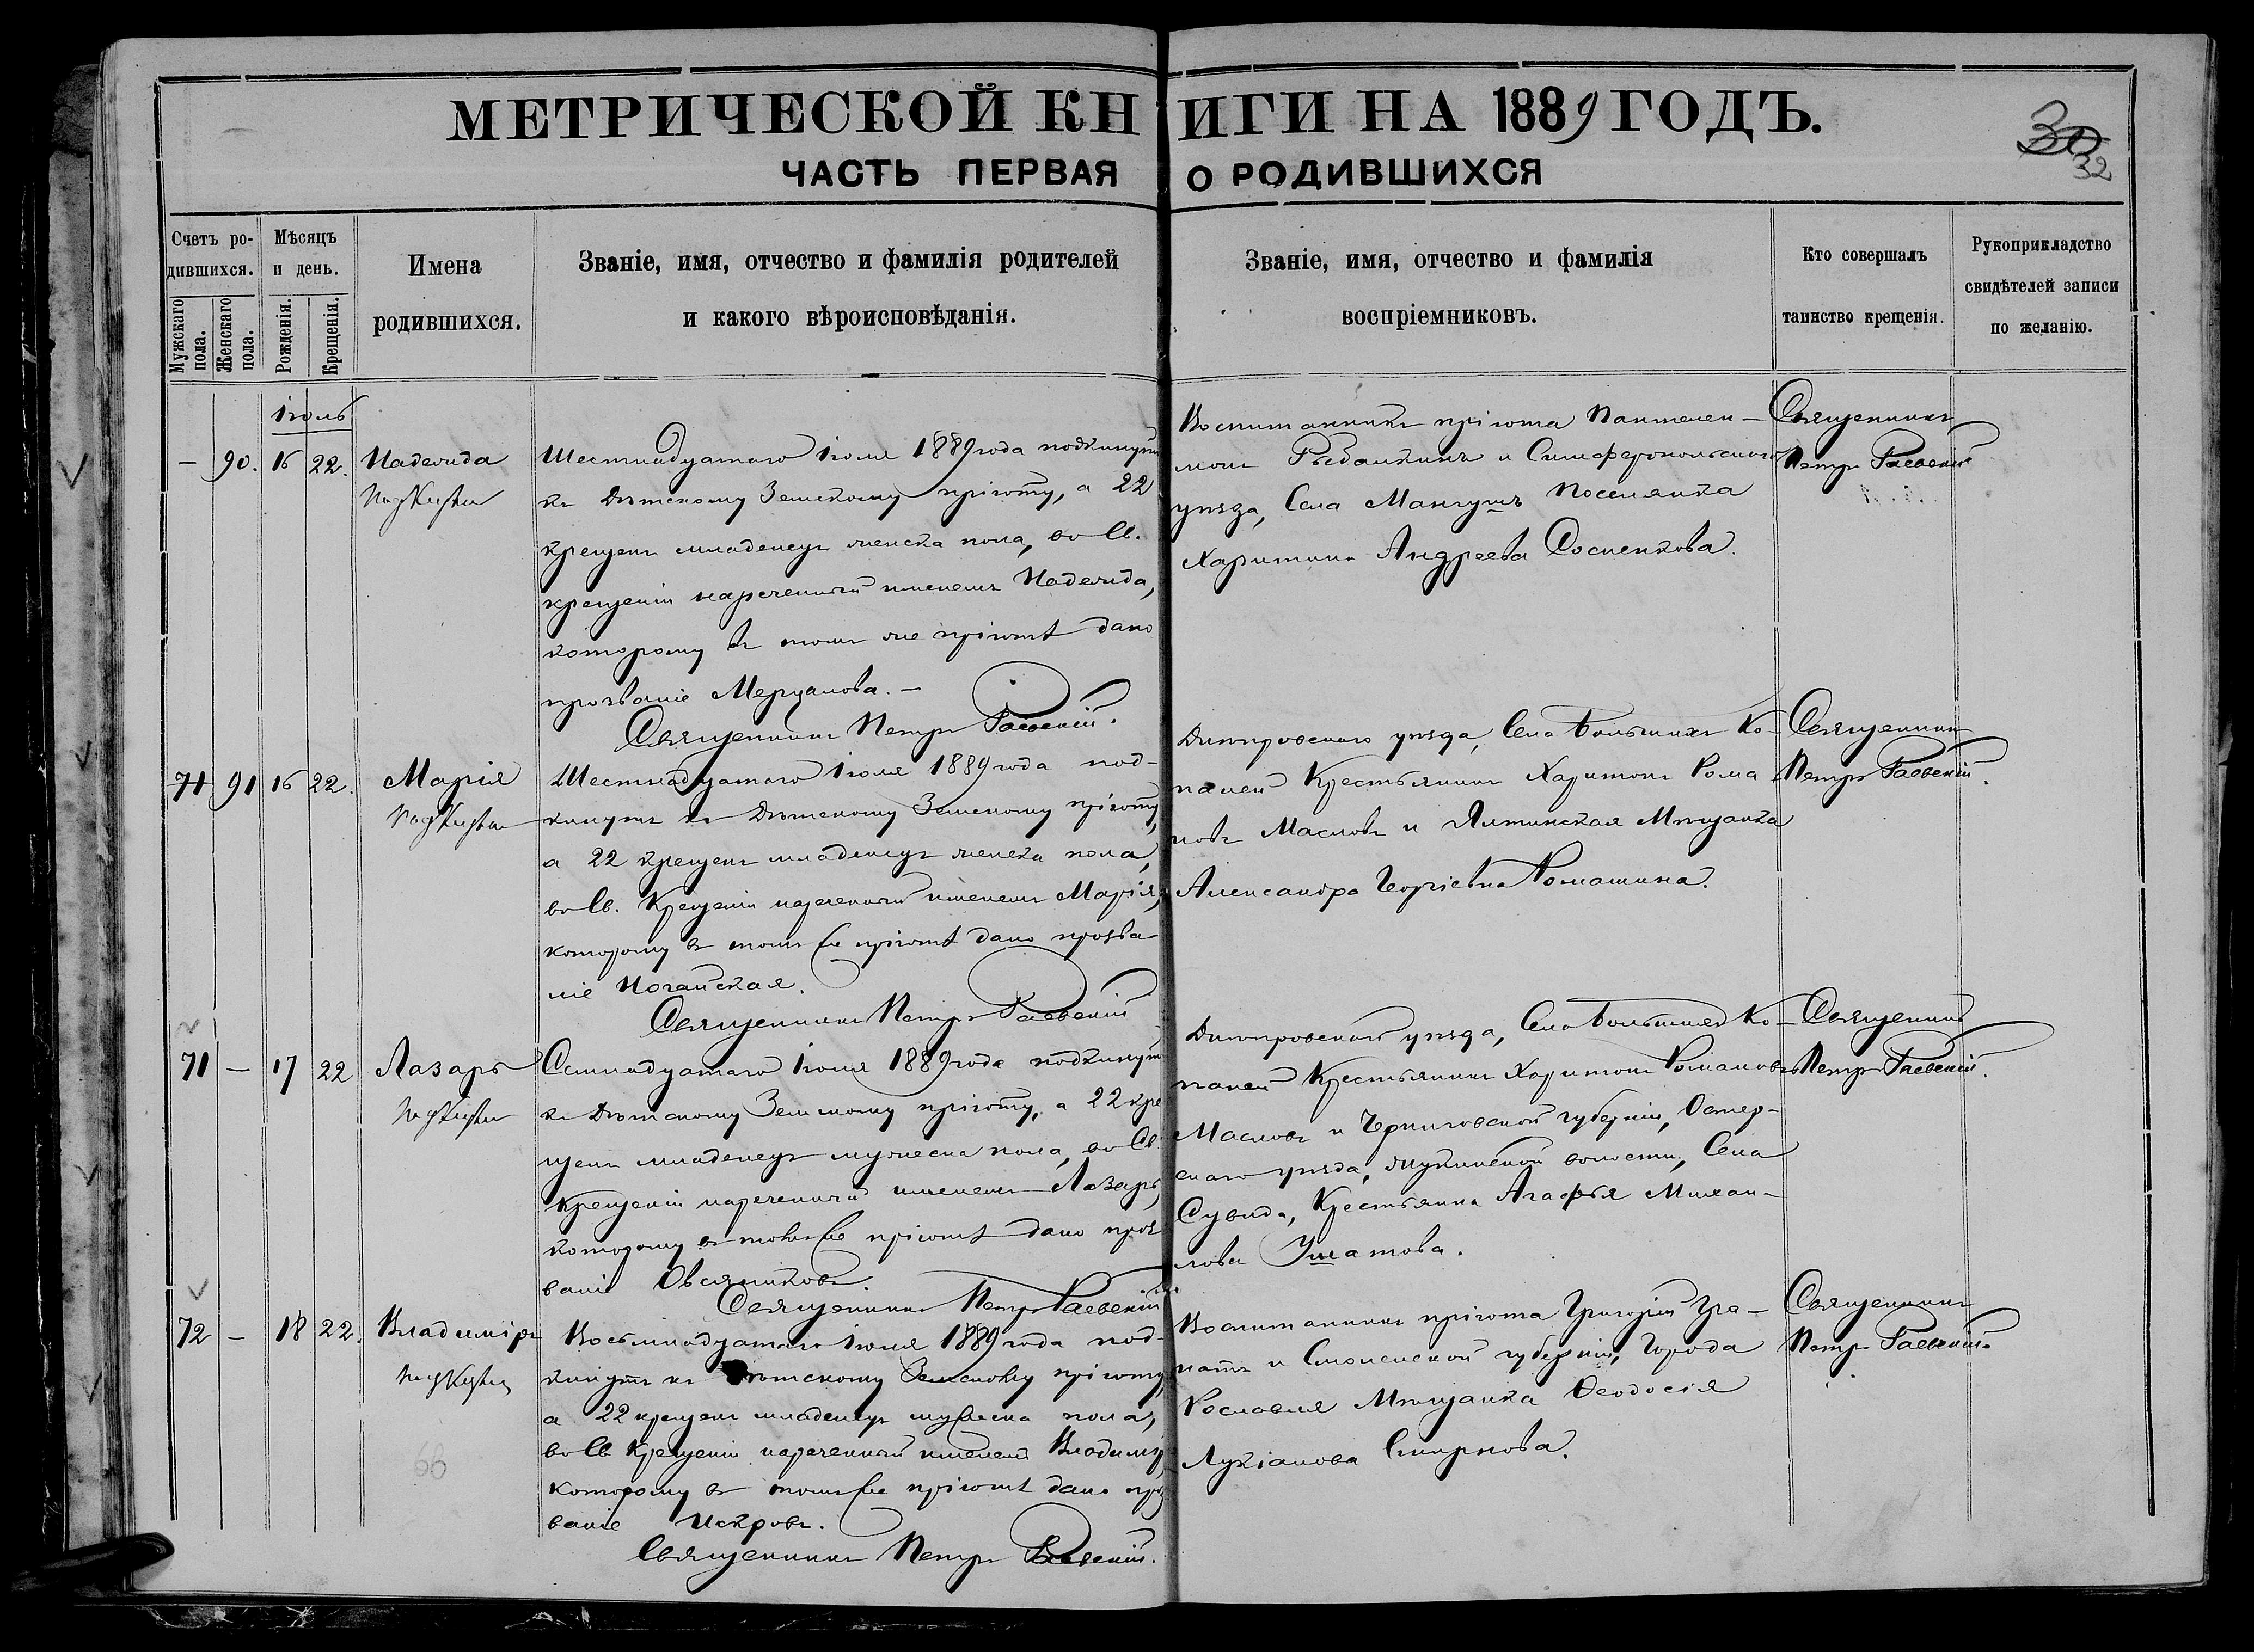 МЕТРИЧЕСКОЙ КНИГИ НА 1889 ГОДЪ.
30
32
ЧАСТЬ ПЕРВАЯ О РОДИВШИХСЯ
Счетъ ро-
дившихся.
Мужскаго
пола.
Женскаго
пола.
Мѣсяцъ
и день.
Рожденія.
Крещенія.
Имена
родившихся.
Званіе, имя, отчество и фамилія родителей
и какого вѣроисповѣданія.
Званіе, имя, отчество и фамилія
воспріемниковъ.
Кто совершалъ
таинство крещенія.
Рукоприкладство
свидѣтелей записи
по желанію.
Іюль
– 90. 16 22. Надежда
Шестнадцатаго Іюля 1889 года подкинутъ
къ Дѣтскому Земскому пріюту, а 22
крещенъ младенецъ женска пола, во Св.
крещеніи нареченный именемъ Надежда,
которому въ томъ же пріютѣ дано
прозваніе Мерцалова. –
Священникъ Петръ Раевскій.
Воспитанникъ пріюта Пантелеи-
монъ Рыбалкинъ и Симферопольскаго
уѣзда, Села Мангушъ Поселянка
Харитина Андреева Сосненкова.
Священникъ
Петръ Раевскій
71 91 16 22. Марія
Шестнадцатаго Іюля 1889 года под-
кинутъ къ Дѣтскому Земскому пріюту,
а 22 крещенъ младенецъ женска пола,
во Св. Крещеніи нареченный именемъ Марія,
которому въ томъ же пріютѣ дано прозва-
ніе Ногайская.
Священникъ Петръ Раевскій
Днѣпровскаго уѣзда, Села Большихъ Ко-
паней Крестьянинъ Харитонъ Рома
новъ Масловъ и Ялтинская Мѣщанка
Александра Георгіевна Ромашина.
Священникъ
Петръ Раевскій.
71 – 17 22 Лазарь
Семнадцатаго Іюля 1889 года подкинутъ
къ Дѣтскому Земскому пріюту, а 22 кре
щенъ младенецъ мужеска пола, во Св.
Крещеніи нареченный именемъ Лазарь,
которому въ томъ же пріютѣ дано проз
ваніе Овсянниковъ.
Священникъ Петръ Раевскій
Днѣпровскаго уѣзда, Села Большихъ Ко-
паней Крестьянинъ Харитонъ Романовъ
Масловъ и Черниговской губерніи, Остер-
скаго уѣзда, волости, Села
Сувида, Крестьянка Агафья Михаи-
лова Ушатова.
Священникъ
Петръ Раевскій.
72 – 18 22. Владиміръ
Восьмнадцатаго Іюля 1889 года под-
кинутъ къ Дѣтскому Земскому пріюту,
а 22 крещенъ младенецъ мужеска пола,
во Св. Крещеніи нареченный именемъ Владиміръ,
которому въ томъ же пріютѣ дано проз
ваніе Искровъ.
Священникъ Петръ Раевскій.
Воспитанникъ пріюта Григорій Гра-
натъ и Смоленской губерніи, Города
Рославля Мѣщанка Феодосія
Лукіанова Смирнова.
Священникъ
Петръ Раевскій.
66